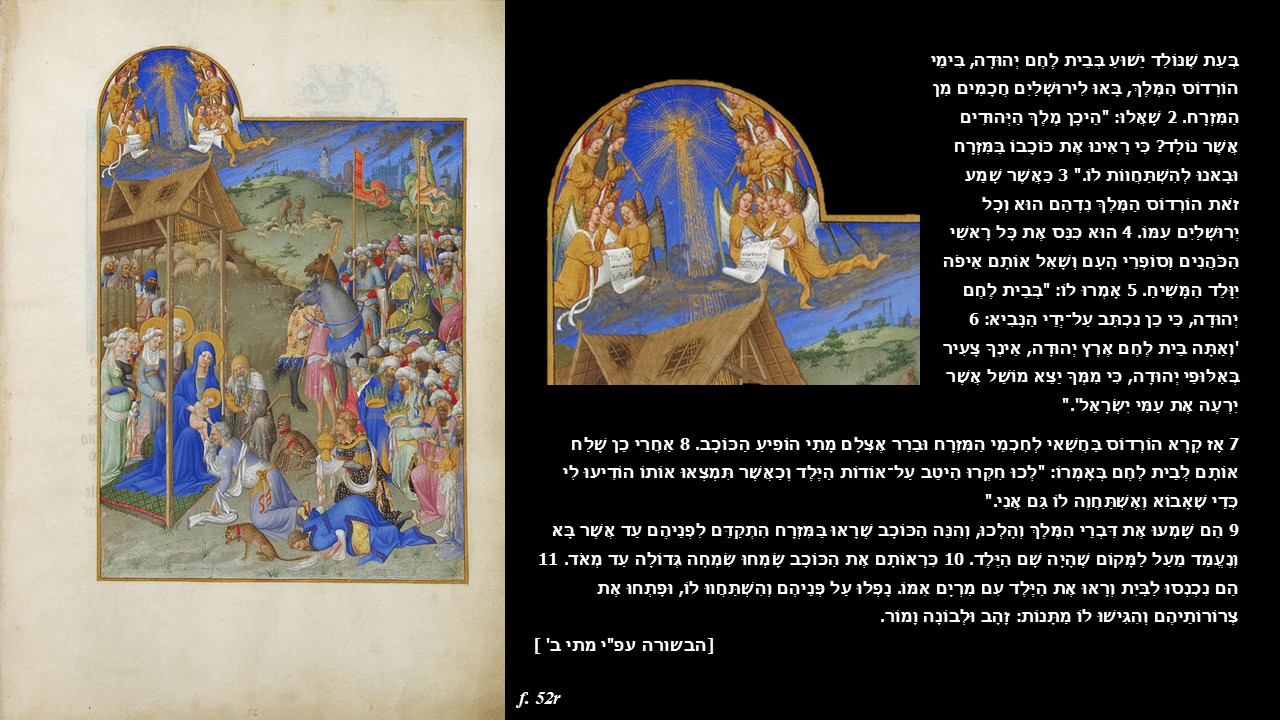 בְּעֵת שֶׁנּוֹלַד יֵשׁוּעַ בְּבֵית לֶחֶם יְהוּדָה, בִּימֵי
הוֹרְדוֹס הַמֶּלֶךְ, בָּאוּ לִירוּשָׁלַיִם חֲכָמִים מִן
הַמִּזְרָח. 2 שָׁאֲלוּ: "הֵיכָן מֶלֶךְ הַיְּהוּדִים
אֲשֶׁר נוֹלָד? כִּי רָאִינוּ אֶת כּוֹכָבוֹ בַּמִּזְרָח
וּבָאנוּ לְהִשְׁתַּחֲווֹת לוֹ." 3 כַּאֲשֶׁר שָׁמַע
זֹאת הוֹרְדוֹס הַמֶּלֶךְ נִדְהַם הוּא וְכָל
יְרוּשָׁלַיִם עִמּוֹ. 4 הוּא כִּנֵּס אֶת כָּל רָאשֵׁי
הַכֹּהֲנִים וְסוֹפְרֵי הָעָם וְשָׁאַל אוֹתָם אֵיפֹה
יִוָּלֵד הַמָּשִׁיחַ. 5 אָמְרוּ לוֹ: "בְּבֵית לֶחֶם
יְהוּדָה, כִּי כֵן נִכְתַּב עַל־יְדֵי הַנָּבִיא: 6
'וְאַתָּה בֵּית לֶחֶם אֶרֶץ יְהוּדָה, אֵינְךָ צָעִיר
בְּאַלּוּפֵי יְהוּדָה, כִּי מִמְּךָ יֵצֵא מוֹשֵׁל אֲשֶׁר
יִרְעֶה אֶת עַמִּי יִשְׂרָאֵל'."
7 אָז קָרָא הוֹרְדוֹס בַּחֲשַׁאי לְחַכְמֵי הַמִּזְרָח וּבֵרֵר אֶצְלָם מָתַי הוֹפִיעַ הַכּוֹכָב. 8 אַחֲרֵי כֵן שָׁלַח
אוֹתָם לְבֵית לֶחֶם בְּאָמְרוֹ: "לְכוּ חִקְרוּ הֵיטֵב עַל־אוֹדוֹת הַיֶּלֶד וְכַאֲשֶׁר תִּמְצְאוּ אוֹתוֹ הוֹדִיעוּ לִי
כְּדֵי שֶׁאָבוֹא וְאֶשְׁתַּחֲוֶה לוֹ גַּם אֲנִי."
9 הֵם שָׁמְעוּ אֶת דִּבְרֵי הַמֶּלֶךְ וְהָלְכוּ, וְהִנֵּה הַכּוֹכָב שֶׁרָאוּ בַּמִּזְרָח הִתְקַדֵּם לִפְנֵיהֶם עַד אֲשֶׁר בָּא
וְנֶעֱמַד מֵעַל לַמָּקוֹם שֶׁהָיָה שָׁם הַיֶּלֶד. 10 כִּרְאוֹתָם אֶת הַכּוֹכָב שָׂמְחוּ שִׂמְחָה גְּדוֹלָה עַד מְאֹד. 11
הֵם נִכְנְסוּ לַבַּיִת וְרָאוּ אֶת הַיֶּלֶד עִם מִרְיָם אִמּוֹ. נָפְלוּ עַל פְּנֵיהֶם וְהִשְׁתַּחֲווּ לוֹ, וּפָתְחוּ אֶת
צְרוֹרוֹתֵיהֶם וְהִגִּישׁוּ לוֹ מַתָּנוֹת: זָהָב וּלְבוֹנָה וָמוֹר.
[הבשורה עפ"י מתי ב' ]
f. 52r